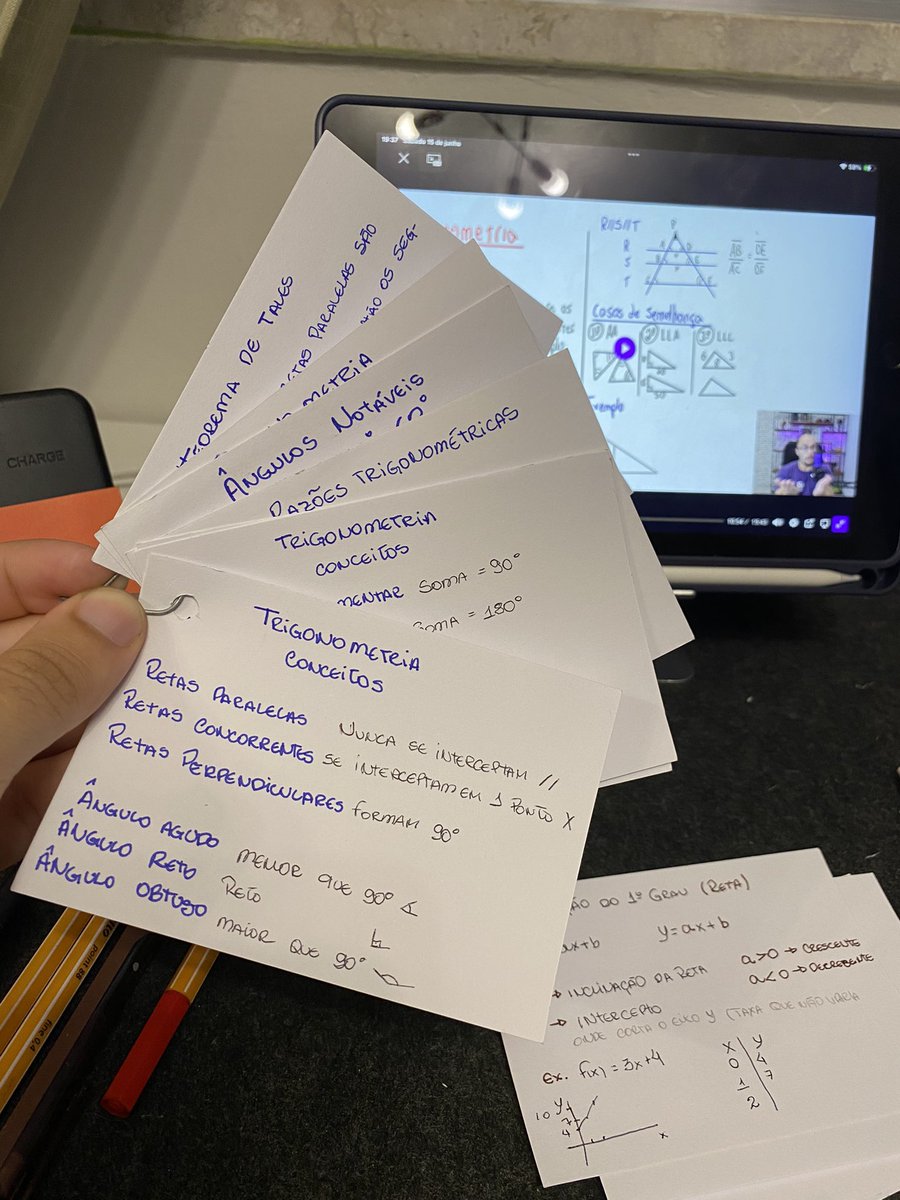 TEOREMA DE TALES
RETAS PARALELAS SÃO
OS SEG-
METRIA
ÂNGULOS NOTÁVEIS
RAZÕES TRIGONOMÉTRICAS
TRIGONOMETRIA
CONCEITOS
MENTAR SOMA = 90°
SOMA = 180°
TRIGONOMETRIA
CONCEITOS
RETAS PARALELAS NUNCA SE INTERCEPTAM //
RETAS CONCORRENTES SE INTERCEPTAM EM 1 PONTO X
RETAS PERPENDICULARES FORMAM 90°
ÂNGULO AGUDO MENOR QUE 90°
ÂNGULO RETO RETO
ÂNGULO OBTUSO MAIOR QUE 90°
ÃO DO 1º GRAU (RETA)
ax+b y=ax+b
→ INCLINAÇÃO DA RETA a>0 → CRESCENTE
a<0 → DECRESCENTE
→ INTERCEPTO
ONDE CORTA O EIXO Y (TAXA QUE NÃO VARIA
EX. f(x) = 3x+4
x y
0 4
1 7
2
10 y
7
4
x
CHARGE
point 88
fine 0,4
19:37 Sábado 15 de junho
59%
ometria
R//S//T
R
S
T
AB/AC = DE/DF
Casos de Semelhança
1º AA 2º LLA 3º LLL
Exemplo